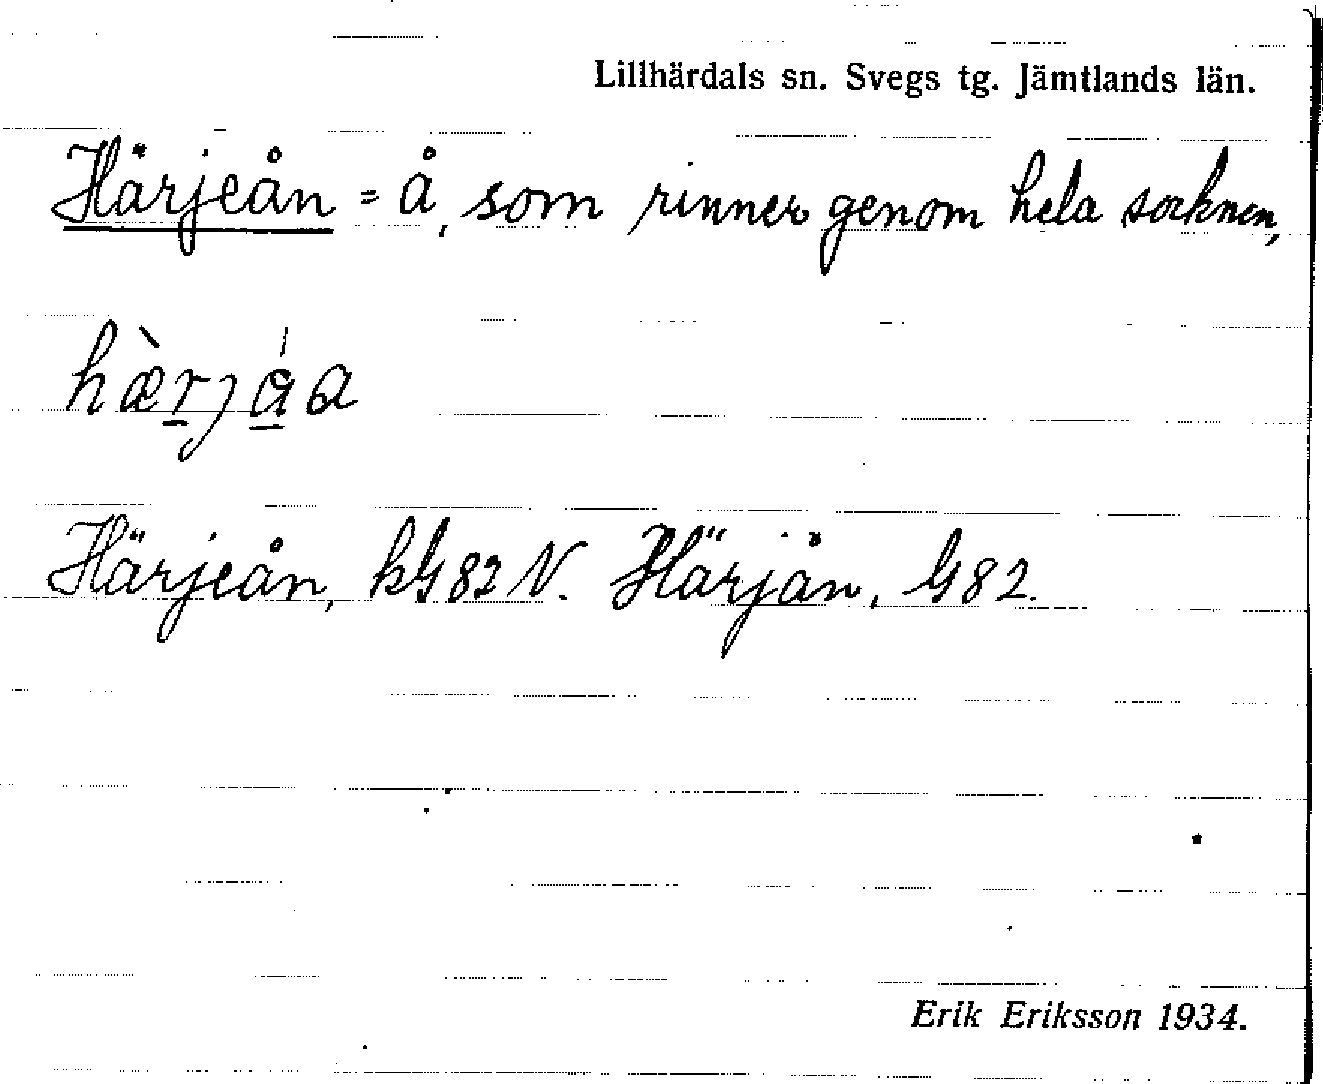 Lillhärdals sn. Svegs tg. Jämtlands län.
Härjeån = å, som rinner genom hela socknen,
hærjåa
Härjeån, kG82 N. Härjån, G82.
Erik Eriksson 1934.